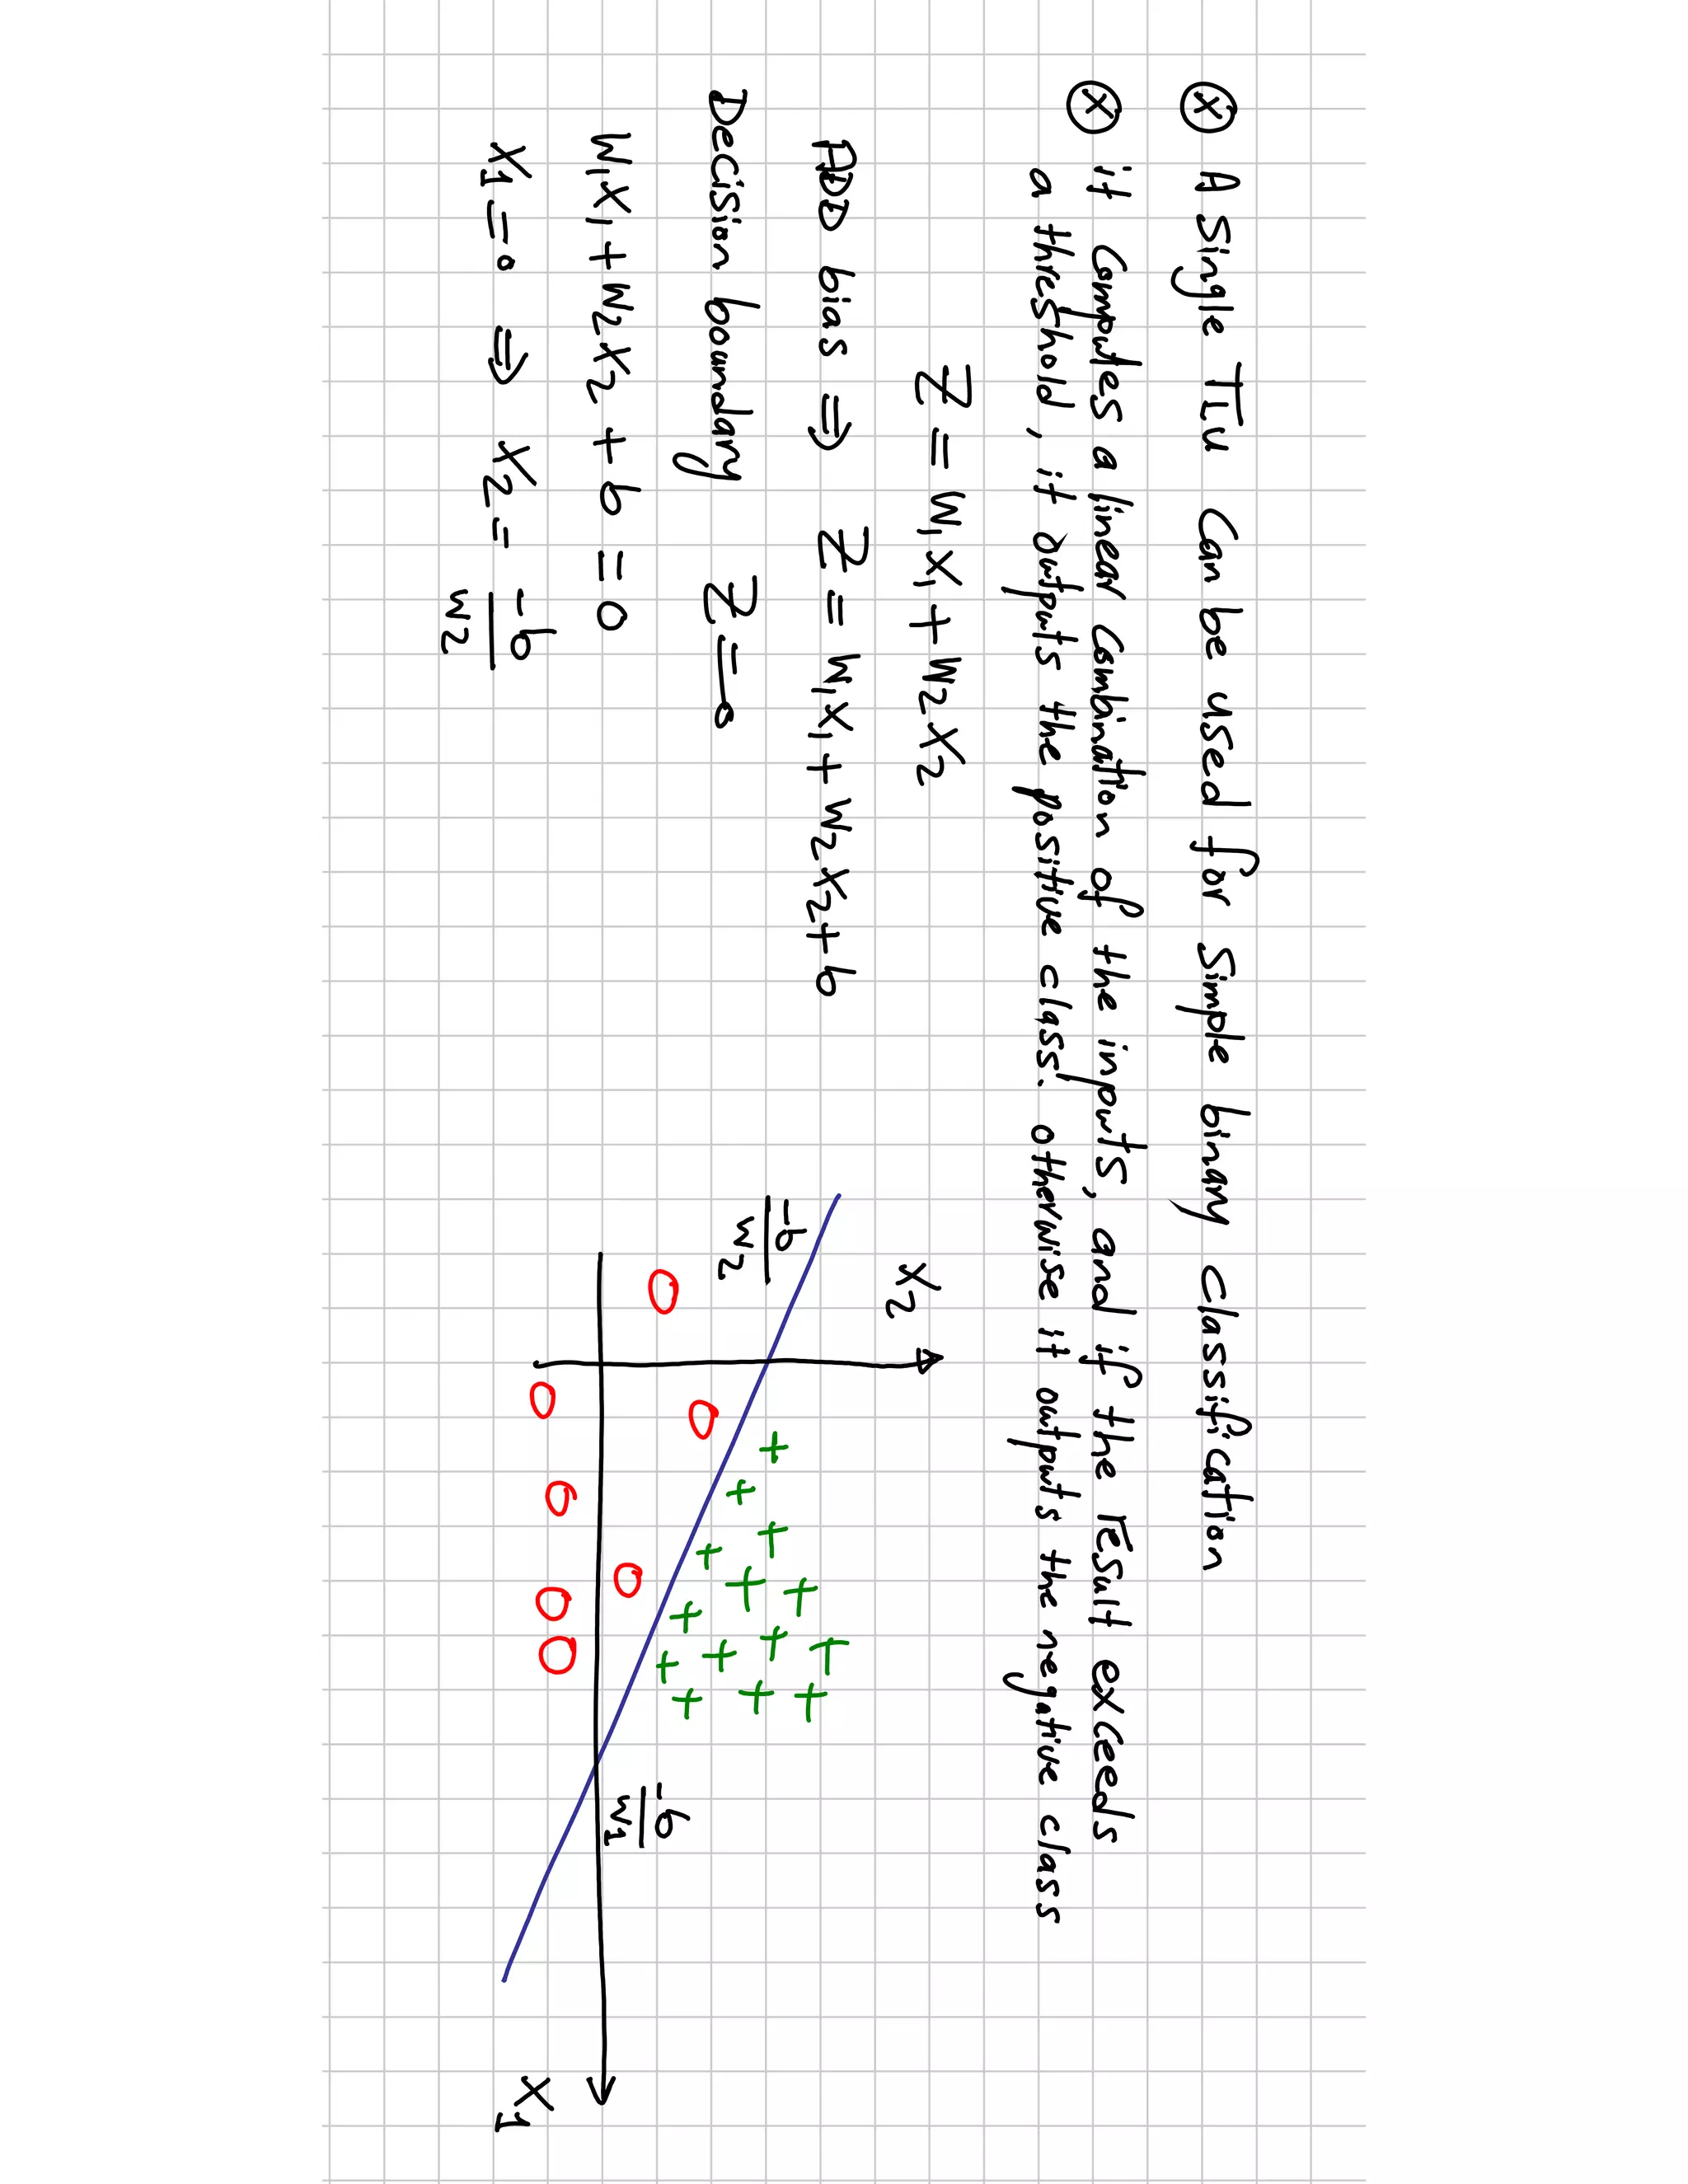 ⊗ A Single TLU Can be used for Simple binary classification
⊗ it Computes a linear Combination of the inputs, and if the result exceeds
a threshold, it outputs the positive class. otherwise it outputs the negative class
Z = W1X1 + W2X2
ADD bias ⇒ Z = W1X1 + W2X2 + b
Decision boundary Z = 0
W1X1 + W2X2 + b = 0
X1 = 0 ⇒ X2 = -b/W2
X2
-b/W2
-b/W1
X1